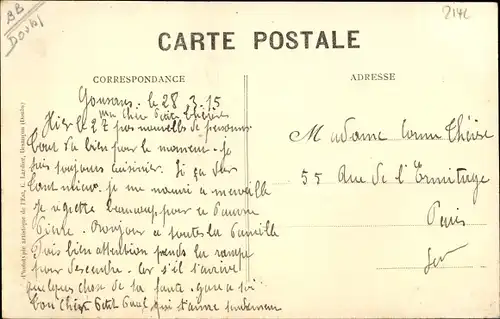 BB
Doubs
214L
CARTE POSTALE
CORRESPONDANCE
ADRESSE
Phototypie artistique de l'Est, C. Lardier, Besançon (Doubs)
Gonsans le 28 3.15
Ma Chère Petite Thérèse
Hier le 27 pas nouvelles de personne
tout va bien pour le moment. je
suis toujours cuisinier. Si ça dur
tant mieux. je me nourri a merveille
Je regrette beaucoup pour ce pauvre
Pierre. Bonjour a toutes la famille
Fais bien attention prends la rampe
pour descendre. Car s'il t'arrive
quelques chose de ta faute. gare a toi
Ton Cheri Petit Paul qui t'aime tendrement
Madame Thérèse
55 Rue de l'Ermitage
Paris